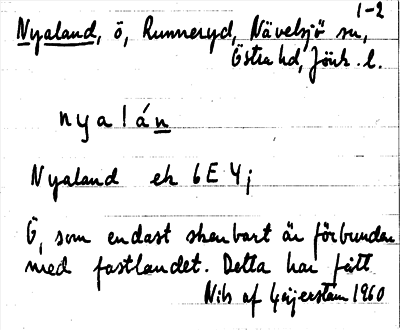 1-2
Nyaland, ö, Runneryd, Nävelsjö sn,
Östra hd, Jönk. l.
nyalán
Nyaland ek 6E4;
Ö, som endast skenbart är förbunden
med fastlandet. Detta har fått
Nils af Geijerstam 1960